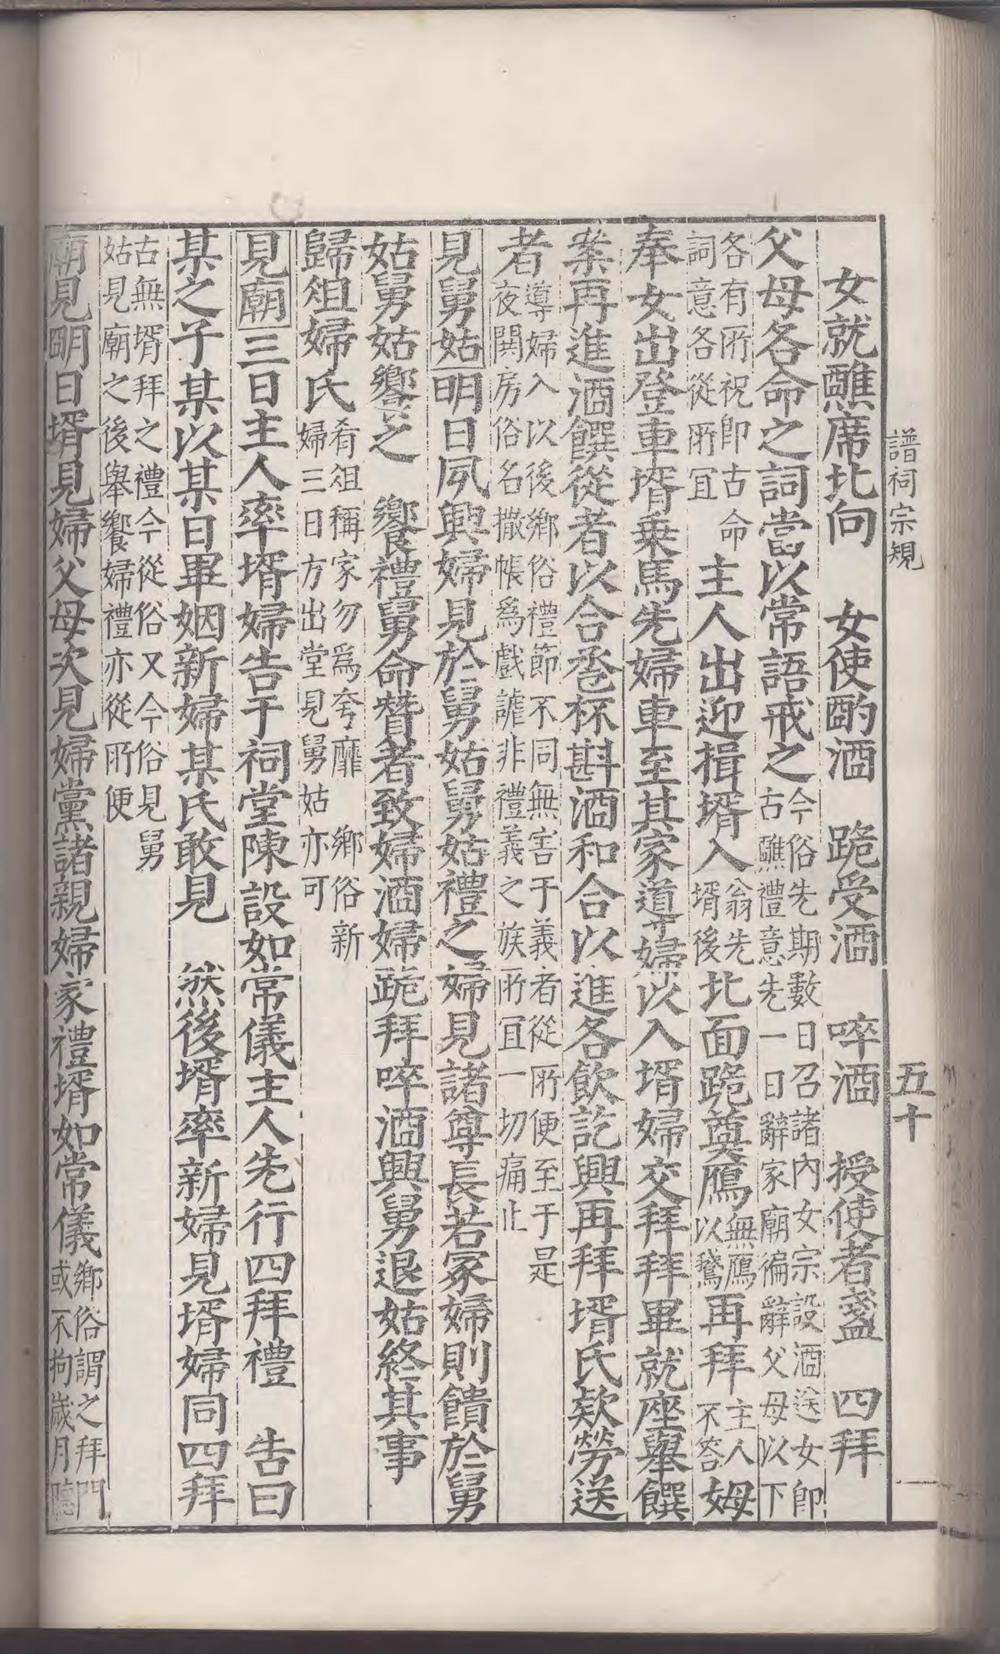 譜祠宗規
五十
女就醮席北向　女使酌酒　跪受酒　啐酒　授使者盞　四拜
父母各命之詞當以常語戒之今俗先期數日召諸內女宗設酒送女即
古醮禮意先一日辭家廟徧辭父母以下
各有所祝即古命
詞意各從所宜
主人出迎揖壻入翁先
壻後
北面跪奠鴈無鴈
以鵞
再拜主人
不答
姆
奉女出登車壻乗馬先婦車至其家導婦以入壻婦交拜拜畢就座舉饌
案再進酒饌從者以合卺杯斟酒和合以進各飲訖興再拜壻氏欵勞送
者導婦入以後鄉俗禮節不同無害于義者從所便至于是
夜鬧房俗名撒帳爲戲謔非禮義之族所宜一切痛止
見舅姑明日夙興婦見於舅姑舅姑禮之婦見諸尊長若冢婦則饋於舅
姑舅姑饗之　饗禮舅命贊者致婦酒婦跪拜啐酒興舅退姑終其事
歸俎婦氏肴俎稱家勿爲夸靡　鄉俗新
婦三日方出堂見舅姑亦可
見廟三日主人率壻婦告于祠堂陳設如常儀主人先行四拜禮　告曰
某之子某以某日畢姻新婦某氏敢見　然後壻率新婦見壻婦同四拜
古無壻拜之禮今從俗又今俗見舅
姑見廟之後舉饗婦禮亦從所便
廟見明日壻見婦父母次見婦黨諸親婦家禮壻如常儀鄉俗謂之拜門
或不拘歲月聽